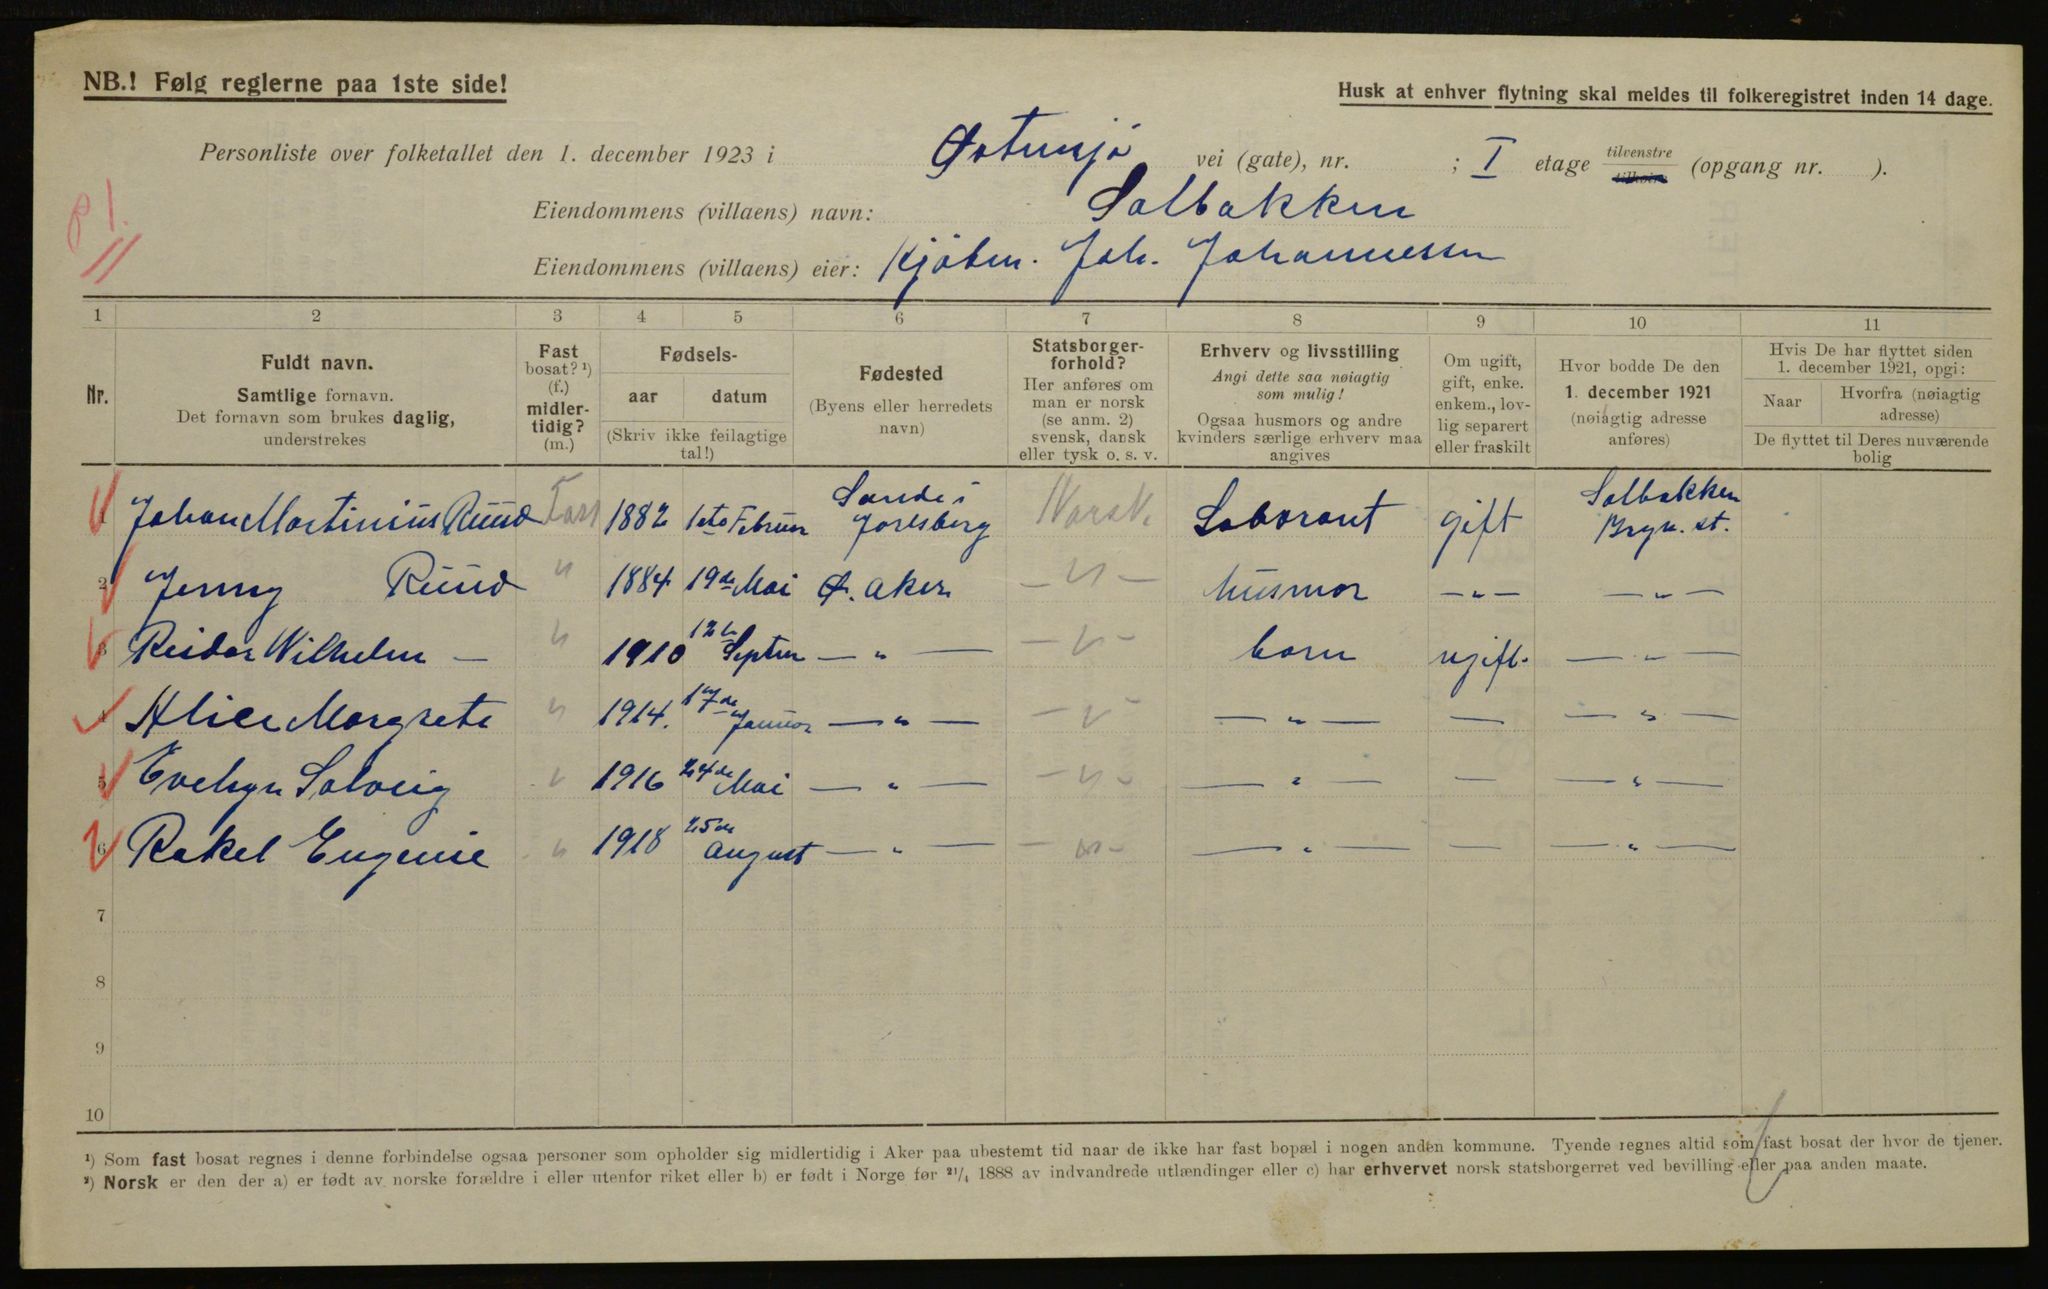 NB.! Følg reglerne paa 1ste side!
Husk at enhver flytning skal meldes til folkeregistret inden 14 dage.
Personliste over folketallet den 1. december 1923 i Østensjø vei (gate), nr. ; I etage tilvenstre tilhøire (opgang nr. ).
Eiendommens (villaens) navn: Solbakken
Eiendommens (villaens) eier: Kjøbm. Joh. Johannessen
1 2 3 4 5 6 7 8 9 10 11
Nr.
Fuldt navn.
Samtlige fornavn.
Det fornavn som brukes daglig,
understrekes
Fast
bosat? ¹)
(f.)
midler-
tidig?
(m.)
Fødsels-
aar datum
(Skriv ikke feilagtige
tal!)
Fødested
(Byens eller herredets
navn)
Statsborger-
forhold?
Her anføres om
man er norsk
(se anm. 2)
svensk, dansk
eller tysk o. s. v.
Erhverv og livsstilling
Angi dette saa nøiagtig
som mulig!
Ogsaa husmors og andre
kvinders særlige erhverv maa
angives
Om ugift,
gift, enke.
enkem., lov-
lig separert
eller fraskilt
Hvor bodde De den
1. december 1921
(nøiagtig adresse
anføres)
Hvis De har flyttet siden
1. december 1921, opgi:
Naar Hvorfra (nøiagtig
adresse)
De flyttet til Deres nuværende
bolig
1 Johan Martinius Ruud Fast 1882 1ste Februar Sande i Jarlsberg Norsk. Laborant gift Solbakken Bryn. st.
2 Jenny Ruud " 1884 19de Mai Ø. Aker — " — husmor — " — — " —
3 Reidar Wilhelm — " 1910 12te Septem — " — — " — barn ugift. — " —
4 Alice Margrete " 1914. 17de Januar — " — — " — — " — — — " —
5 Evelyn Solveig " 1916 24de Mai — " — — " — — " — — — " —
6 Rakel Eugenie " 1918 25de August — " — — " — — " — — — " —
7
8
9
10
¹) Som fast bosat regnes i denne forbindelse ogsaa personer som opholder sig midlertidig i Aker paa ubestemt tid naar de ikke har fast bopæl i nogen anden kommune. Tyende regnes altid som fast bosat der hvor de tjener.
²) Norsk er den der a) er født av norske forældre i eller utenfor riket eller b) er født i Norge før 21/4 1888 av indvandrede utlændinger eller c) har erhvervet norsk statsborgerret ved bevilling eller paa anden maate.